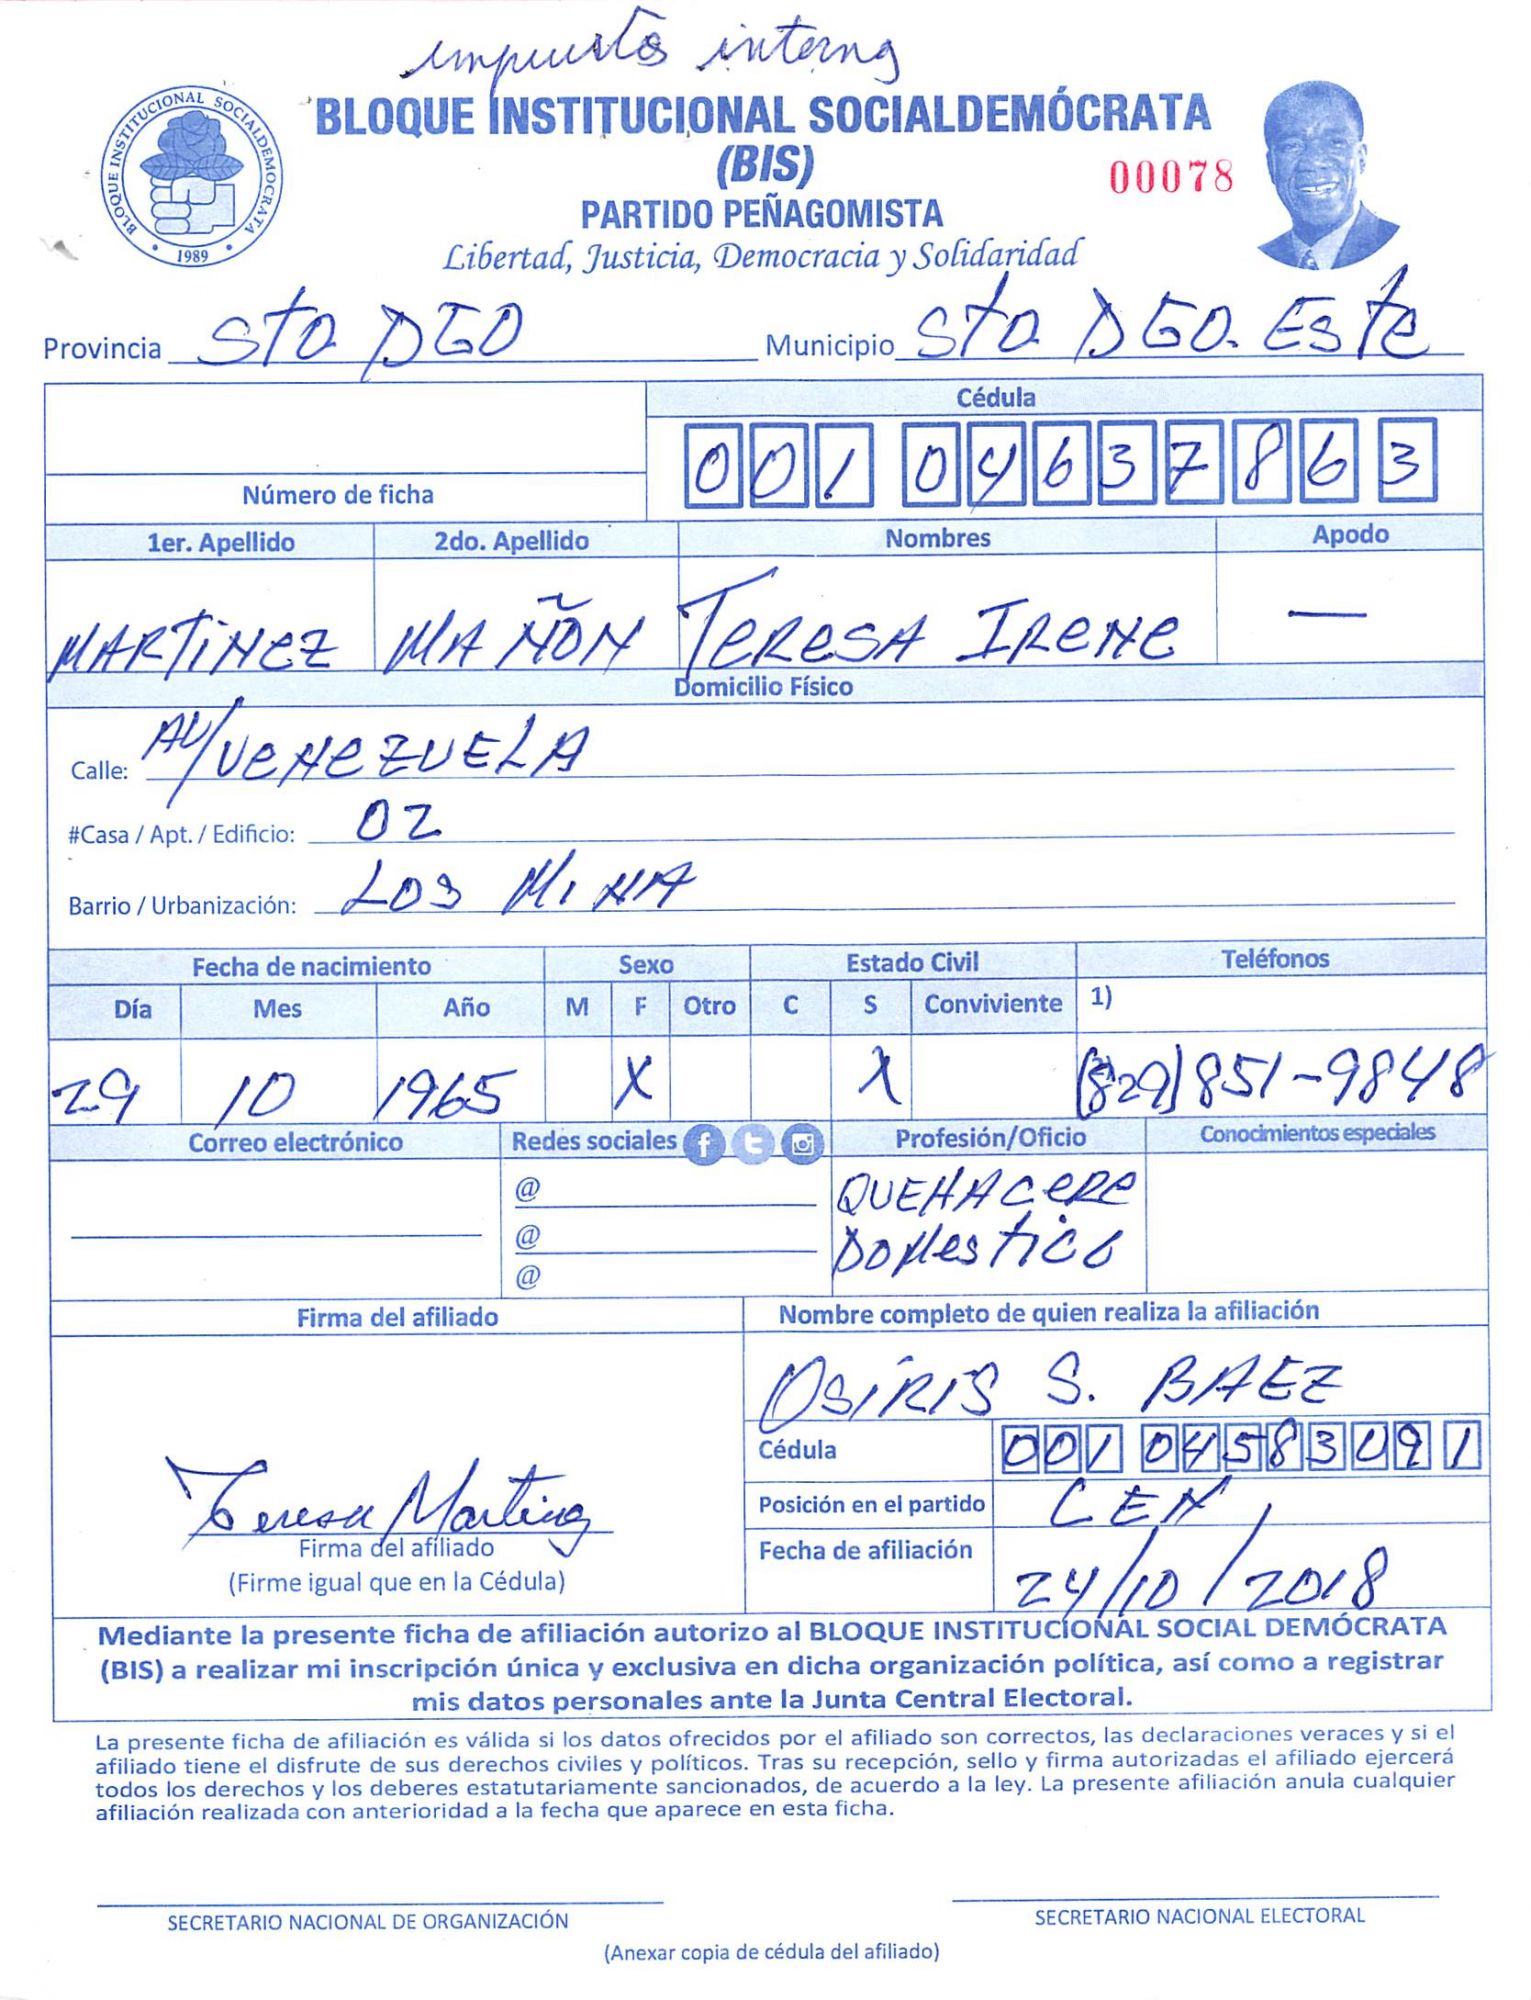 impuestos interno
BLOQUE INSTITUCIONAL SOCIALDEMOCRATA
1989
BLOQUE INSTITUCIONAL SOCIALDEMÓCRATA
(BIS)
00078
PARTIDO PEÑAGOMISTA
Libertad, Justicia, Democracia y Solidaridad
Provincia STO DGO Municipio STO. DGO. ESTE
Cédula
001 0463786 3
Número de ficha
1er. Apellido 2do. Apellido Nombres Apodo
MARTINEZ MAÑON TERESA IRENE —
Domicilio Físico
Calle: AV/VENEZUELA
#Casa / Apt. / Edificio: 02
Barrio / Urbanización: LOS MINA
Fecha de nacimiento Sexo Estado Civil Teléfonos
Día Mes Año M F Otro C S Conviviente 1)
29 10 1965 X X (829) 851-9848
Correo electrónico Redes sociales Profesión/Oficio Conocimientos especiales
@ QUEHACERE
@ DOMESTICO
@
Firma del afiliado Nombre completo de quien realiza la afiliación
OSIRIS S. BAEZ
Cédula 001 0458309 1
Teresa Martinez
Posición en el partido CEN
Firma del afiliado
Fecha de afiliación 24/10/2018
(Firme igual que en la Cédula)
Mediante la presente ficha de afiliación autorizo al BLOQUE INSTITUCIONAL SOCIAL DEMÓCRATA
(BIS) a realizar mi inscripción única y exclusiva en dicha organización política, así como a registrar
mis datos personales ante la Junta Central Electoral.
La presente ficha de afiliación es válida si los datos ofrecidos por el afiliado son correctos, las declaraciones veraces y si el
afiliado tiene el disfrute de sus derechos civiles y políticos. Tras su recepción, sello y firma autorizadas el afiliado ejercerá
todos los derechos y los deberes estatutariamente sancionados, de acuerdo a la ley. La presente afiliación anula cualquier
afiliación realizada con anterioridad a la fecha que aparece en esta ficha.
SECRETARIO NACIONAL DE ORGANIZACIÓN SECRETARIO NACIONAL ELECTORAL
(Anexar copia de cédula del afiliado)